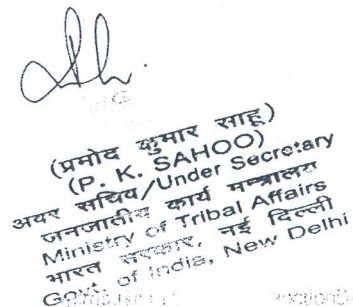 (प्रमोद कुमार साहू)
(P. K. SAHOO)
अवर सचिव/Under Secretary
जनजातीय कार्य मन्त्रालय
Ministry of Tribal Affairs
भारत सरकार, नई दिल्ली
Govt. of India, New Delhi